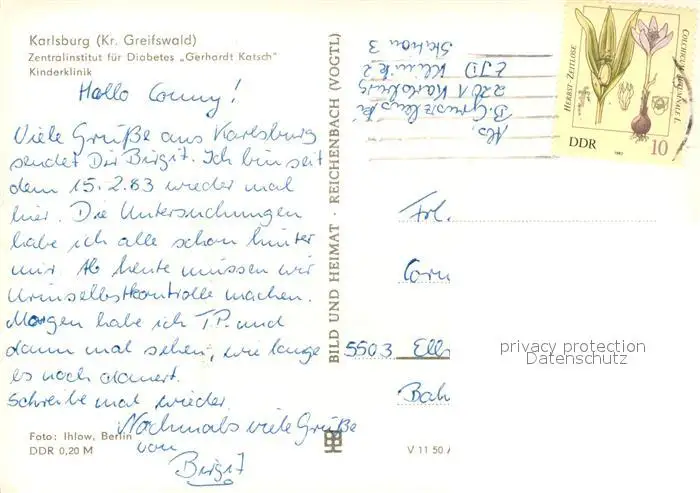 Karlsburg (Kr. Greifswald)
Zentralinstitut für Diabetes „Gerhardt Katsch"
Kinderklinik
Hallo Conny!
Viele Grüße aus Karlsburg
sendet Dir Birgit. Ich bin seit
dem 15.2.83 wieder mal
hier. Die Untersuchungen
habe ich alle schon hinter
mir. Ab heute müssen wir
Urinselbstkontrolle machen.
Morgen habe ich TP. und
dann mal sehen, wie lange
es noch dauert.
Schreibe mal wieder.
Nochmals viele Grüße
von
Birgit
Foto: Ihlow, Berlin
DDR 0,20 M
BILD UND HEIMAT · REICHENBACH (VOGTL)
V 11 50
Abs.
B.
2201 Karlsburg
ZJD Klinik 2
Station 3
HERBST-ZEITLOSE
COLCHICUM AUTUMNALE L.
DDR
1982
10
Frl.
Corn
5503 Ell
Bah
privacy protection
Datenschutz